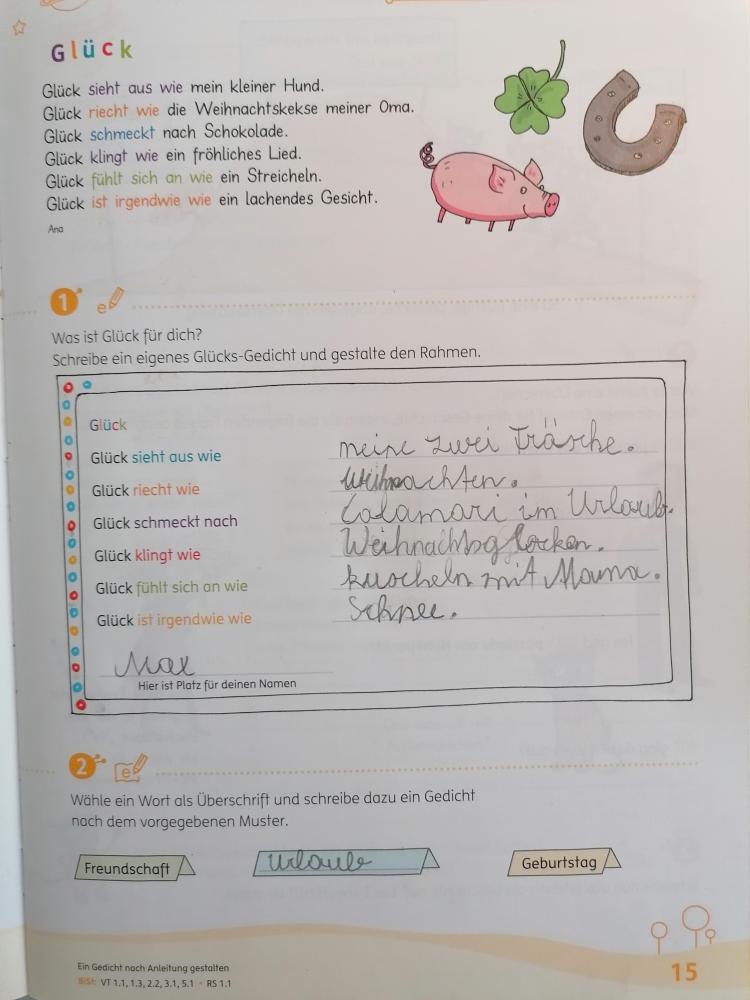 Glück
Glück sieht aus wie mein kleiner Hund.
Glück riecht wie die Weihnachtskekse meiner Oma.
Glück schmeckt nach Schokolade.
Glück klingt wie ein fröhliches Lied.
Glück fühlt sich an wie ein Streicheln.
Glück ist irgendwie wie ein lachendes Gesicht.
Ana
1 e
Was ist Glück für dich?
Schreibe ein eigenes Glücks-Gedicht und gestalte den Rahmen.
Glück
Glück sieht aus wie meine zwei Fräsche.
Glück riecht wie Weihnachten.
Glück schmeckt nach Calamari im Urlaub.
Glück klingt wie Weihnachtsglocken.
Glück fühlt sich an wie kuscheln mit Mama.
Glück ist irgendwie wie Schnee.
Max
Hier ist Platz für deinen Namen
2 e
Wähle ein Wort als Überschrift und schreibe dazu ein Gedicht
nach dem vorgegebenen Muster.
Freundschaft Urlaub Geburtstag
Ein Gedicht nach Anleitung gestalten
BiSt: VT 1.1, 1.3, 2.2, 3.1, 5.1 • RS 1.1
15